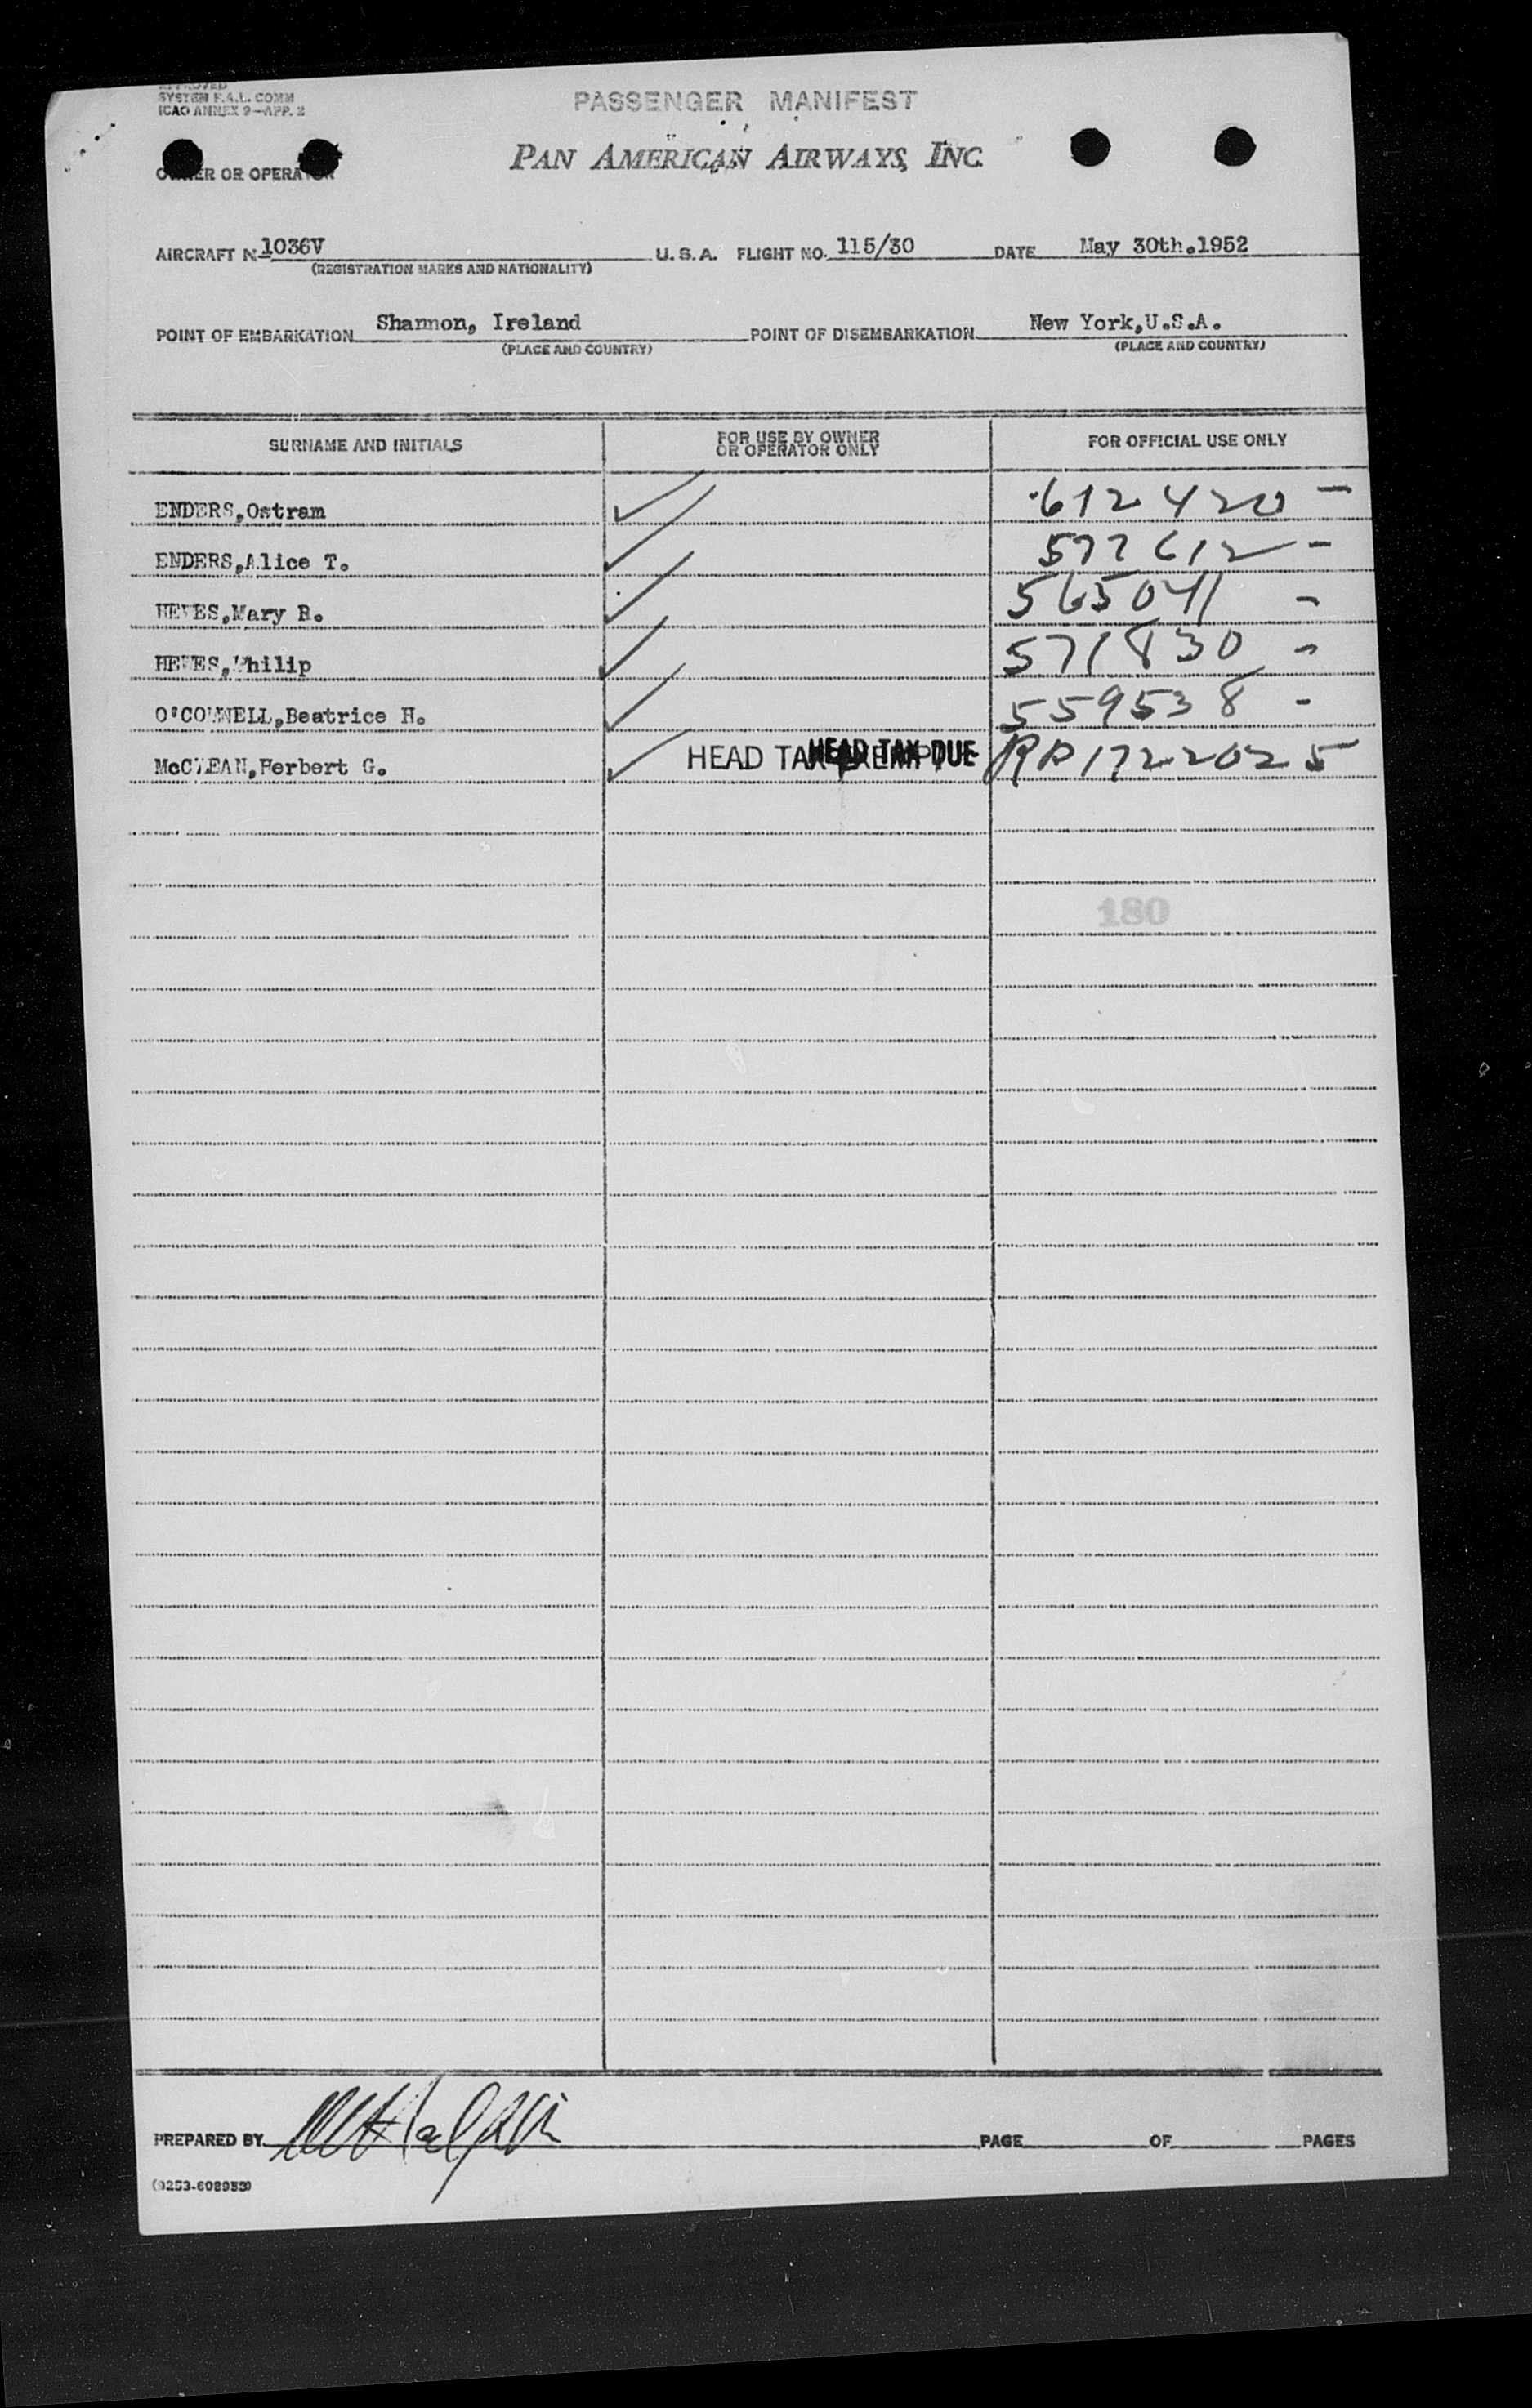 APPROVED
SYSTEM F.A.L. COMM
ICAO ANNEX 9-APP. 2
PASSENGER MANIFEST
OWNER OR OPERATOR
PAN AMERICAN AIRWAYS, INC.
AIRCRAFT N-1036V U.S.A. FLIGHT NO. 115/30 DATE May 30th.1952
(REGISTRATION MARKS AND NATIONALITY)
POINT OF EMBARKATION Shannon, Ireland POINT OF DISEMBARKATION New York,U.S.A.
(PLACE AND COUNTRY) (PLACE AND COUNTRY)
SURNAME AND INITIALS FOR USE BY OWNER OR OPERATOR ONLY FOR OFFICIAL USE ONLY
ENDERS,Ostram 612420 -
ENDERS,Alice T. 577612 -
Mary B. 565041 -
Philip 571830 -
O'CONNELL,Beatrice H. 559538 -
McCLEAN,Herbert G. HEAD TAX EXEMPT HEAD TAX DUE 1722025
180
PREPARED BY PAGE OF PAGES